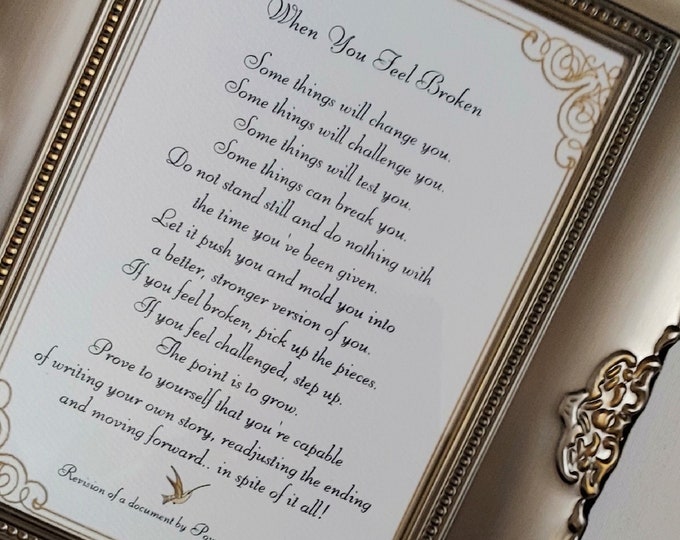 When You Feel Broken
Some things will change you.
Some things will challenge you.
Some things will test you.
Some things can break you.
Do not stand still and do nothing with
the time you've been given.
Let it push you and mold you into
a better, stronger version of you.
If you feel broken, pick up the pieces.
If you feel challenged, step up.
The point is to grow.
Prove to yourself that you're capable
of writing your own story, readjusting the ending
and moving forward.. in spite of it all!
Revision of a document by